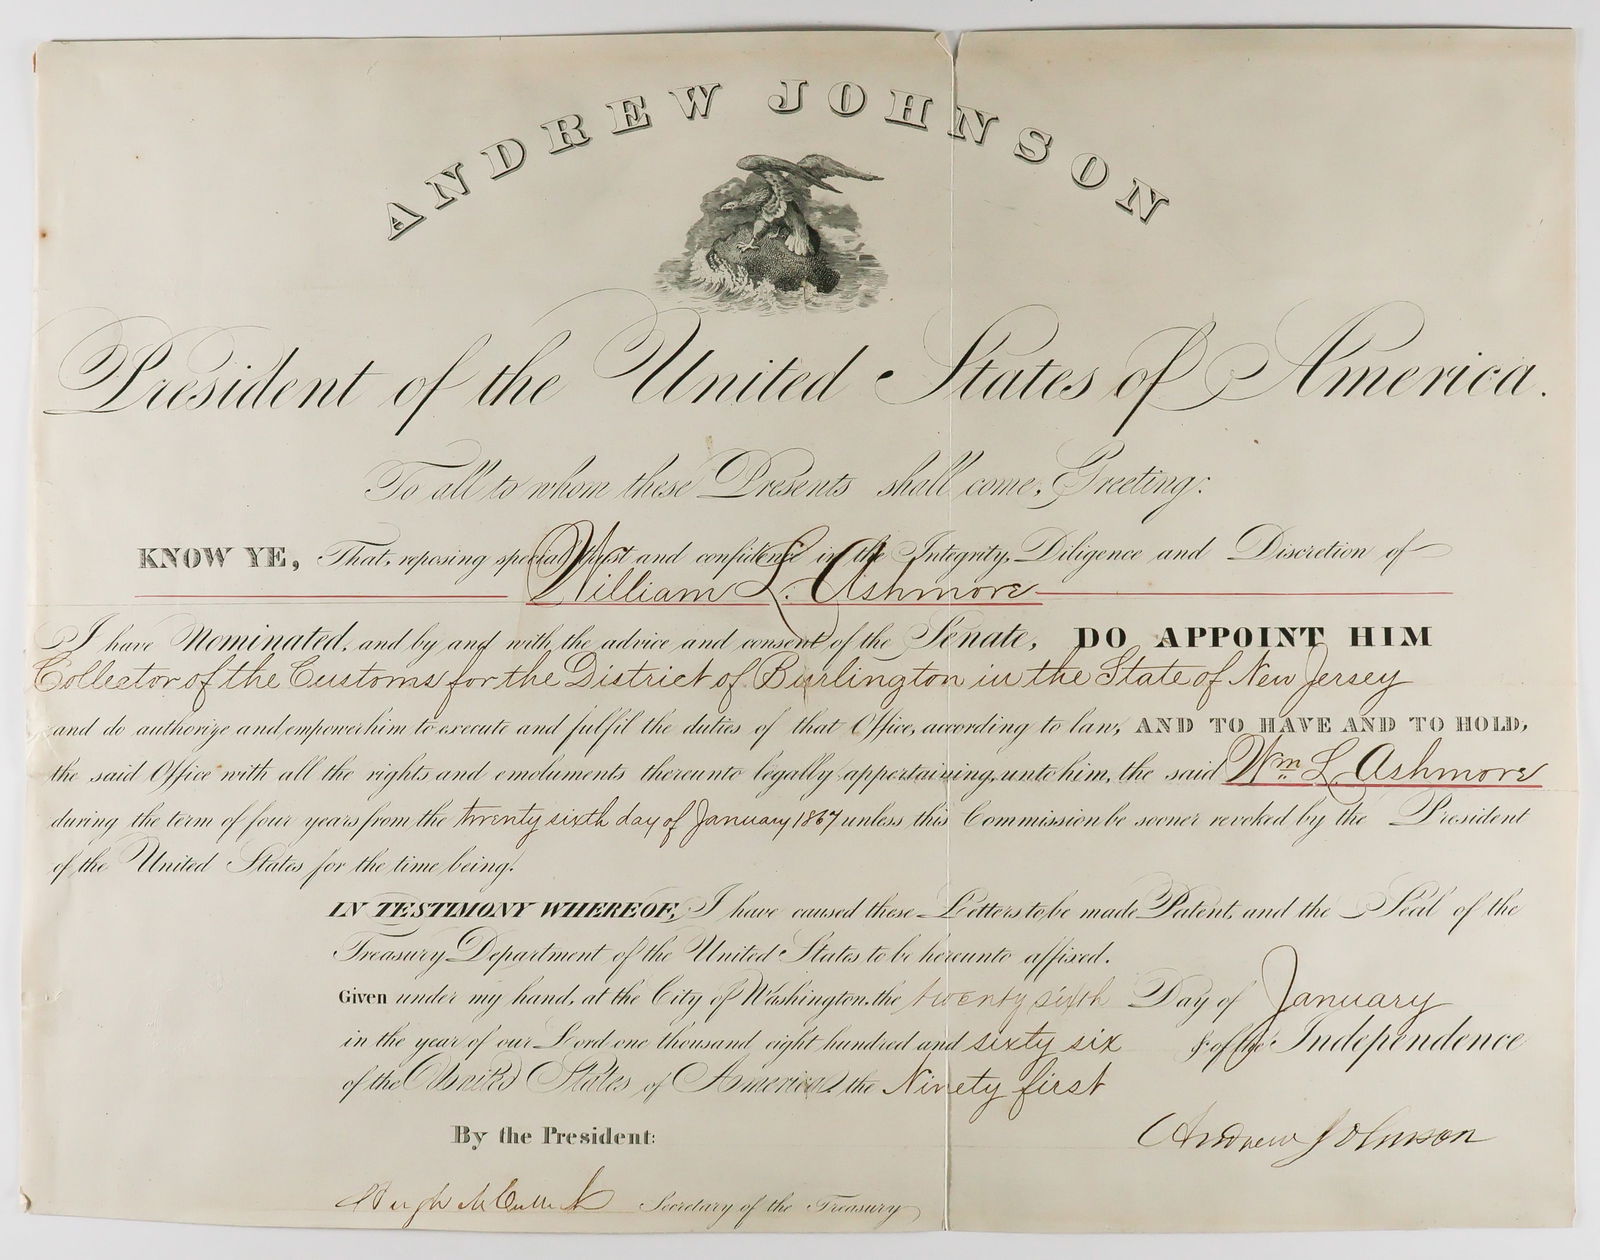 ANDREW JOHNSON
President of the United States of America.
To all to whom these Presents shall come, Greeting:
KNOW YE, That, reposing special trust and confidence in the Integrity, Diligence and Discretion of
William L. Ashmore
I have Nominated, and by and with the advice and consent of the Senate, DO APPOINT HIM
Collector of the Customs for the District of Burlington in the State of New Jersey
and do authorize and empower him to execute and fulfil the duties of that Office, according to law, AND TO HAVE AND TO HOLD,
the said Office with all the rights and emoluments thereunto legally appertaining, unto him, the said Wm L Ashmore
during the term of four years from the twenty sixth day of January 1867 unless this Commission be sooner revoked by the President
of the United States for the time being.
IN TESTIMONY WHEREOF, I have caused these Letters to be made Patent, and the Seal of the
Treasury Department of the United States to be hereunto affixed.
Given under my hand, at the City of Washington, the twenty sixth Day of January
in the year of our Lord one thousand eight hundred and sixty six & of the Independence
of the United States of America the Ninety first
By the President:
Andrew Johnson
Hugh McCulloch Secretary of the Treasury